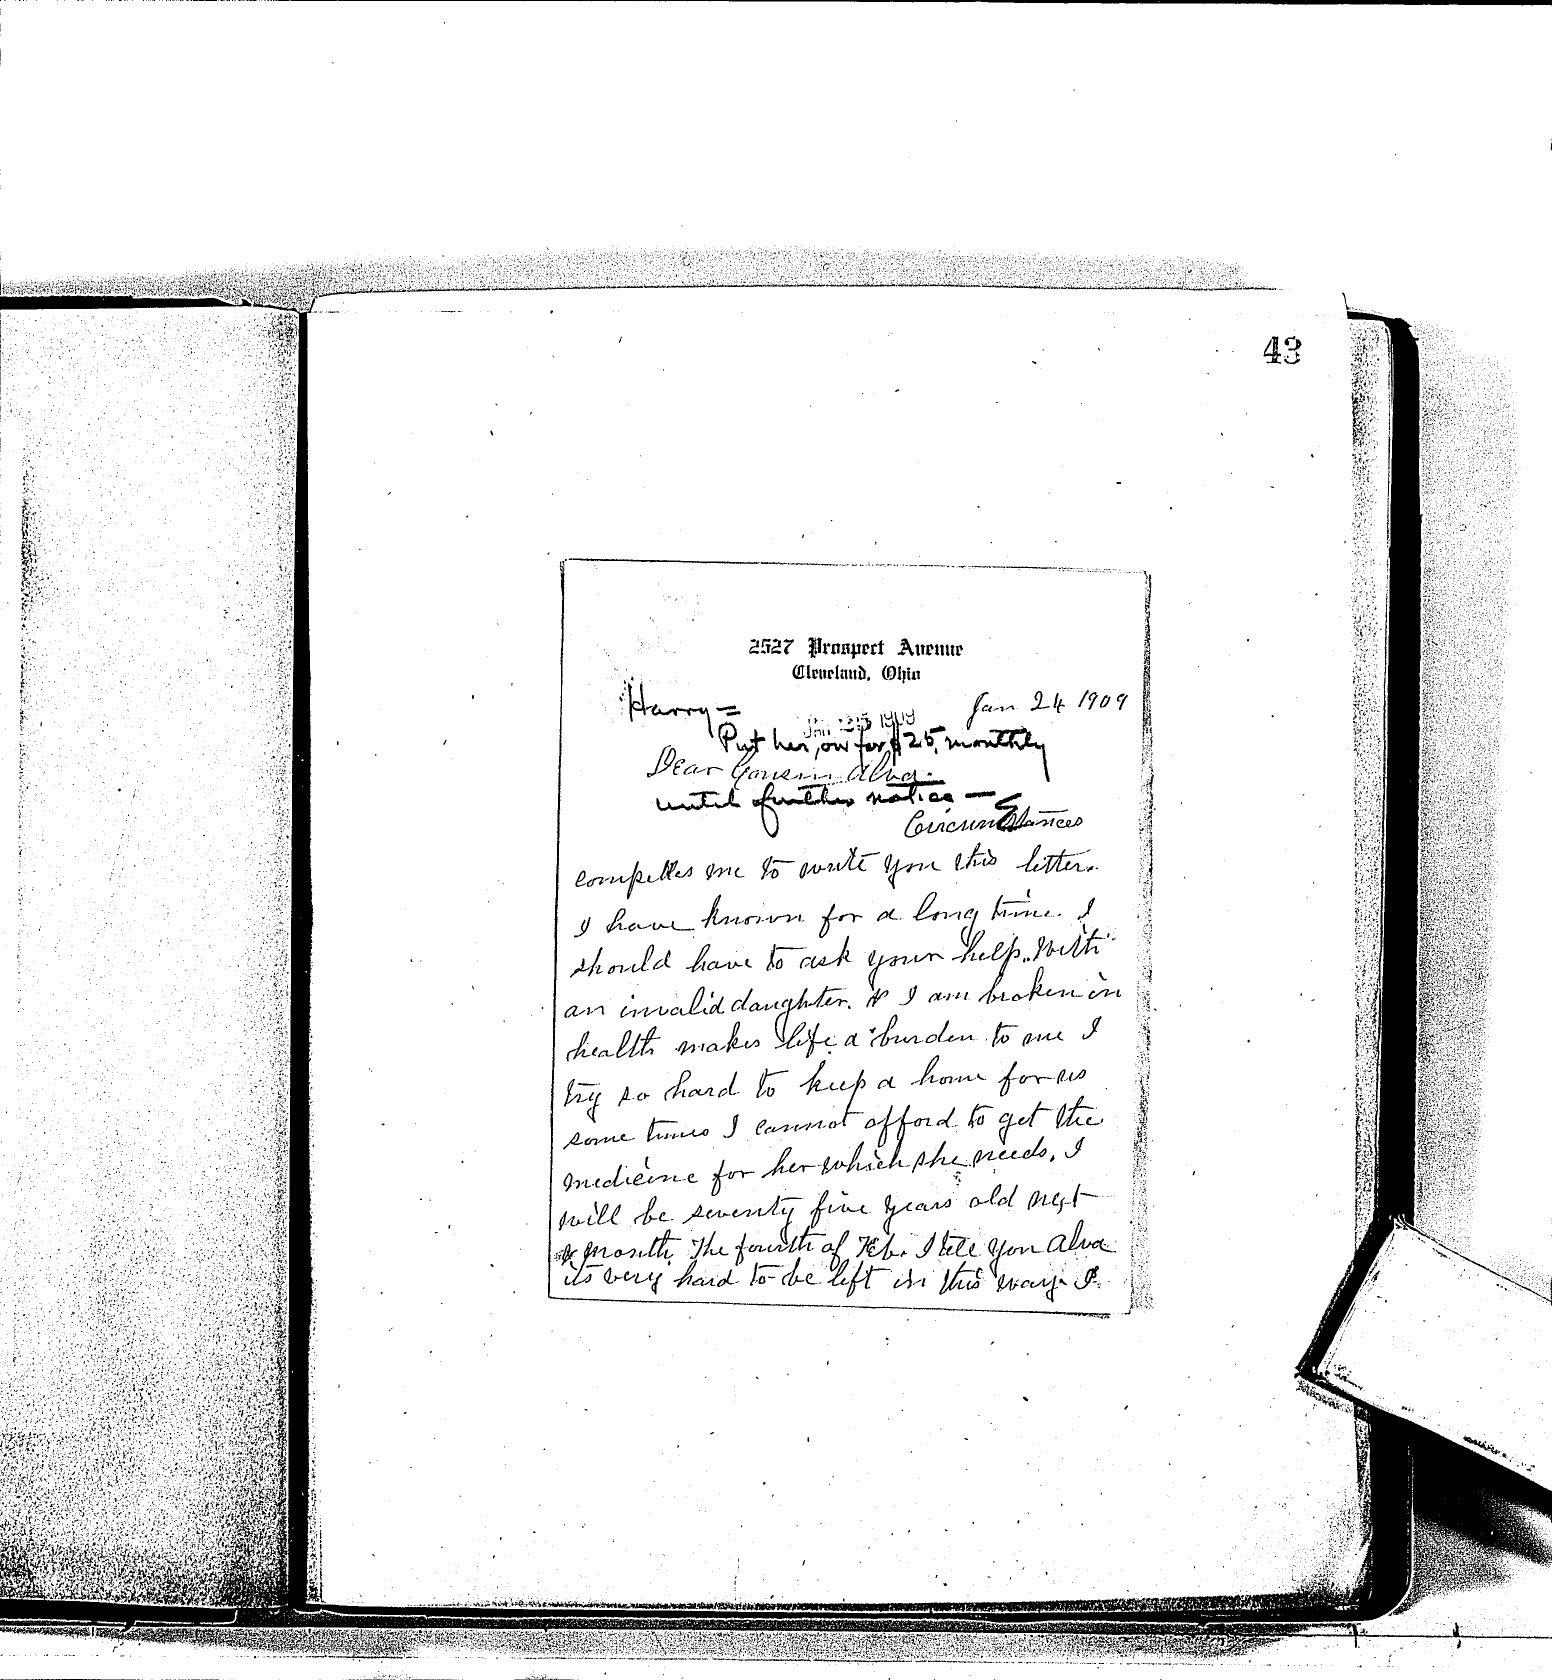 43
2527 Prospect Avenue
Cleveland, Ohio
Harry = Jan 24 1909
JAN 25 1909
Put her on for $25, monthly
Dear Cousin Alva.
until further notice — E
Circumstances
compelles me to write you this letter.
I have known for a long time. I
should have to ask your help. With
an invalid daughter. & I am broken in
health makes life a burden to me I
try so hard to keep a home for us
some times I cannot afford to get the
medicine for her which she needs. I
will be seventy five years old next
month The fourth of Feb. I tell you Alva
its very hard to be left in this way I